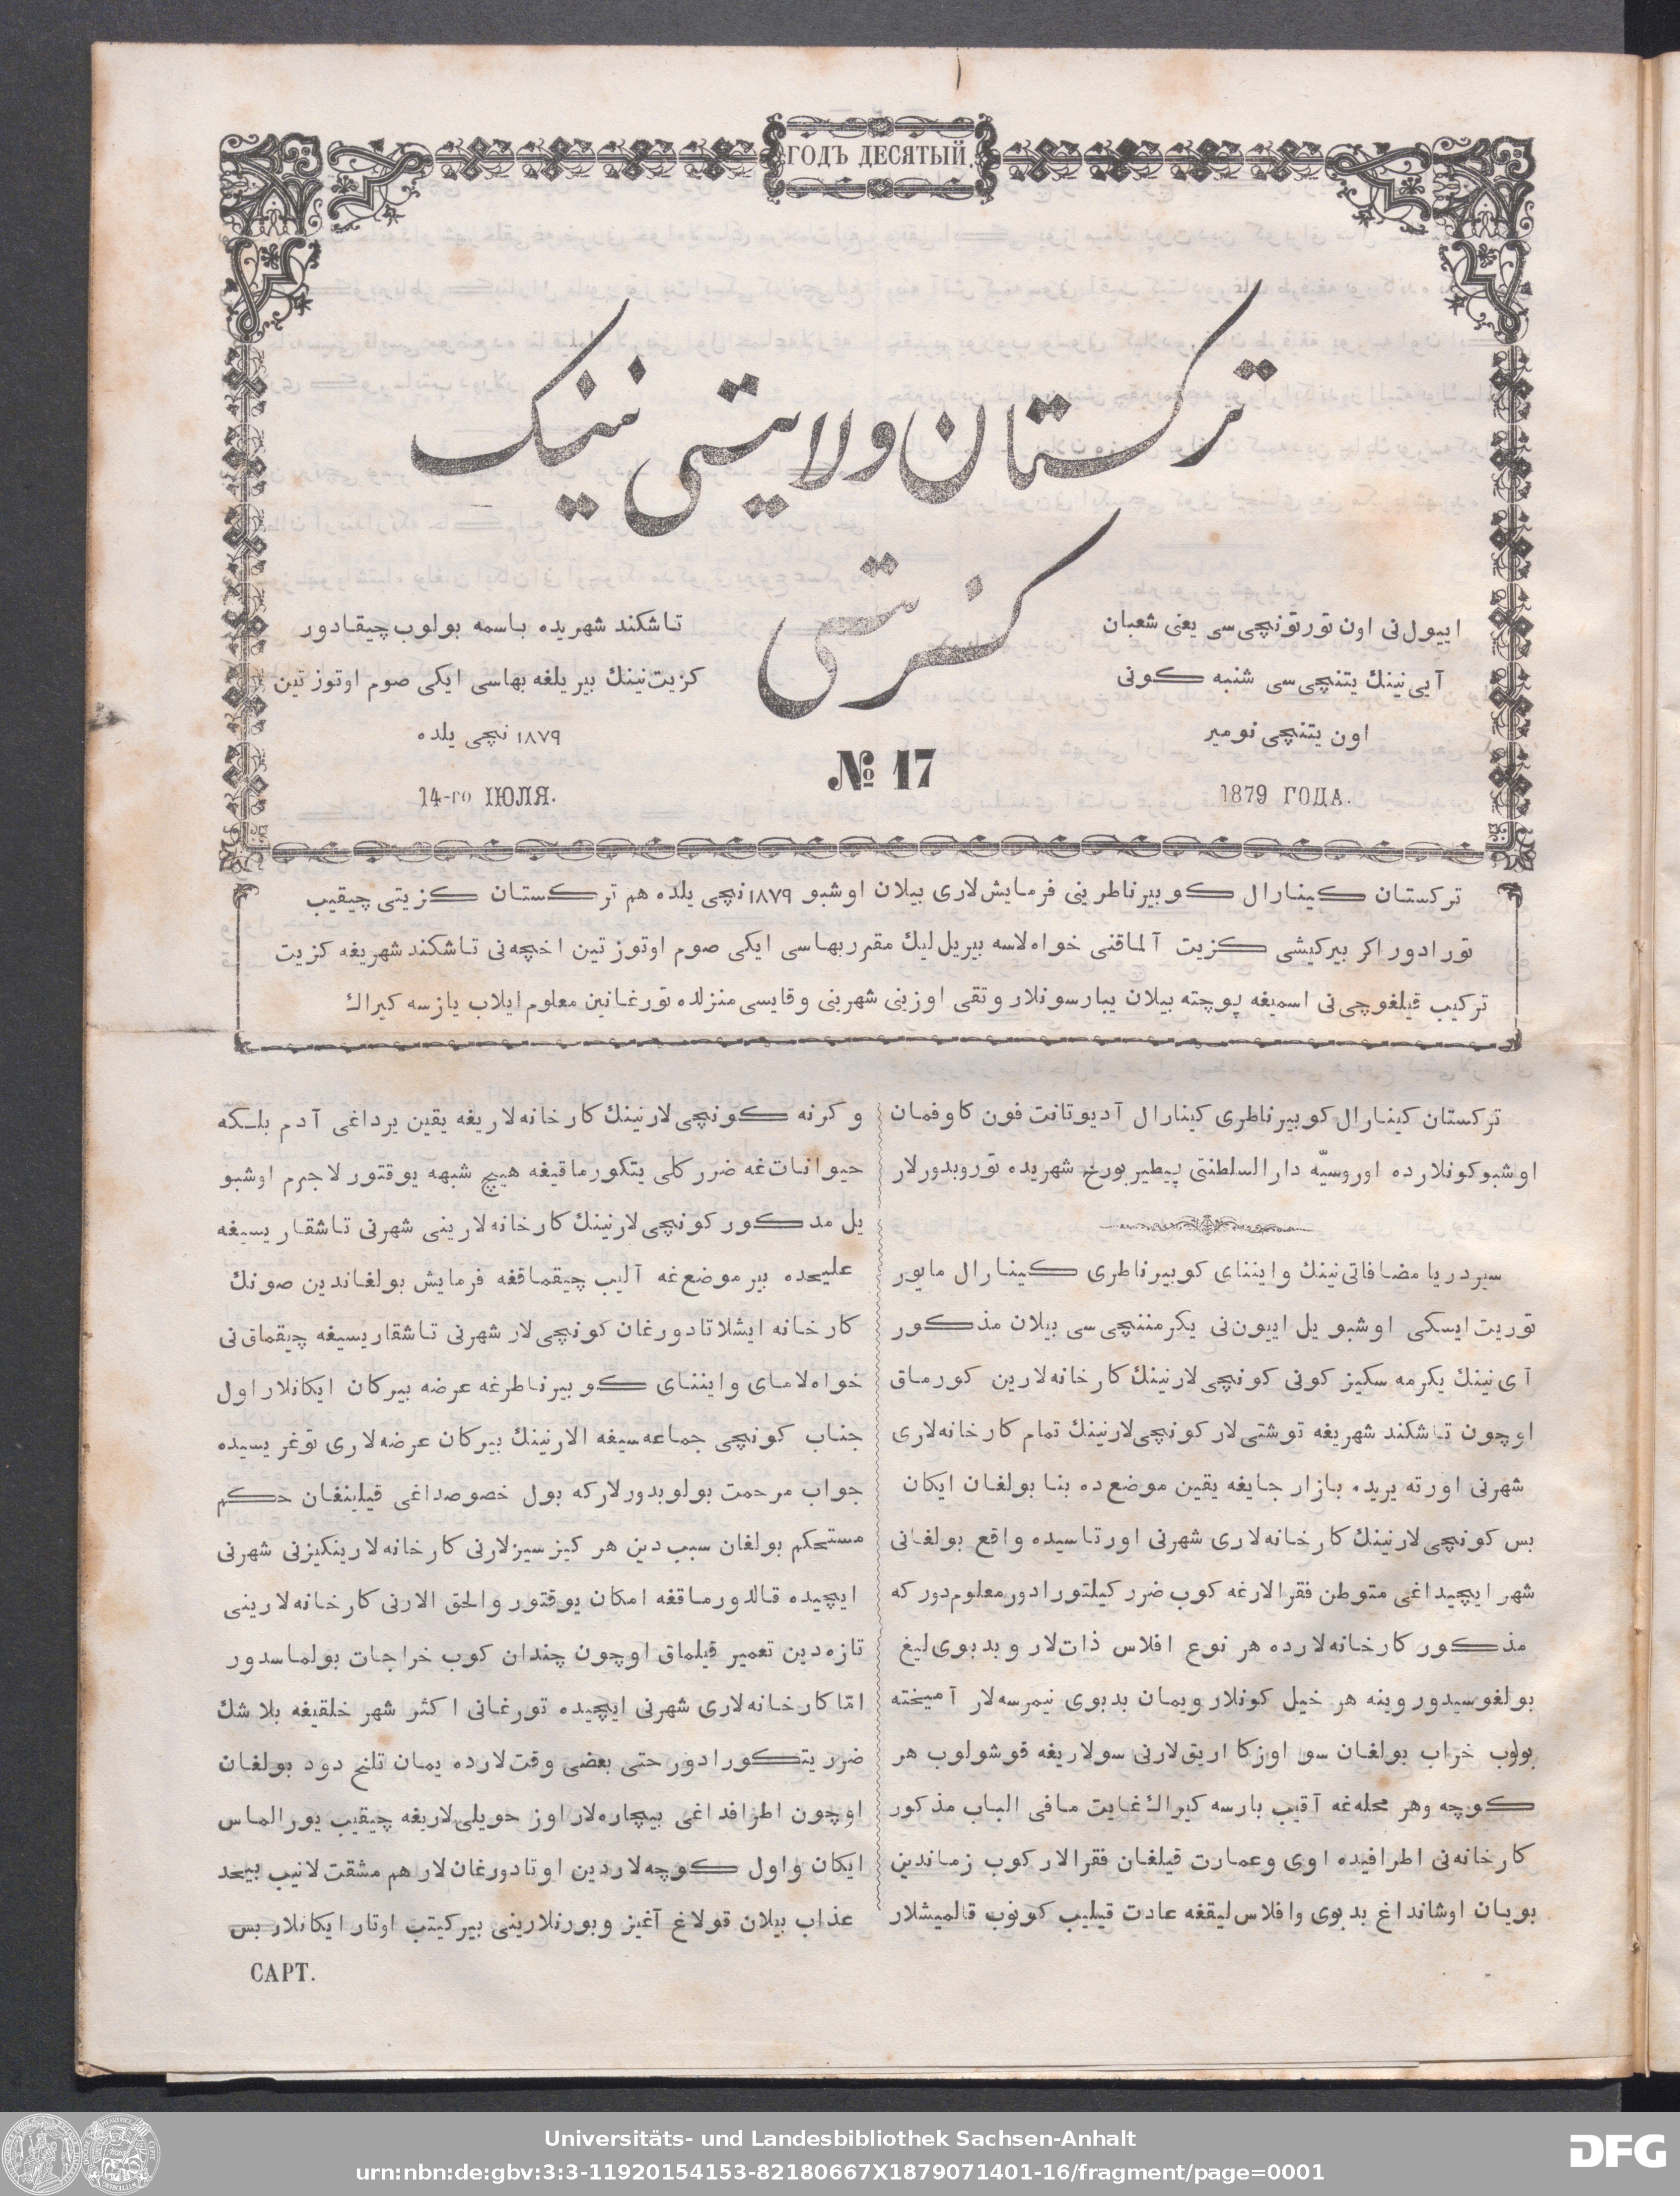 ГОДЪ ДЕСЯТЫЙ.
ترکستان ولایتی نینک
کزیتی
اییول‌نی اون تورتونچی‌سی یغنی شعبان
آیی‌نینك یتنچی‌سی شنبه کونی
اون یتنچی نومیر
1879 ГОДА.
№ 17
تاشکند شهریده باسمه بولوب چیقادور
کزیت‌نینك بیر یلغه بهاسی ایکی صوم اوتوز تین
۱۸۷۹ نچی یلده
14-го ІЮЛЯ.
ترکستان کینارال کوبیرناطرینی فرمایش‌لاری بیلان اوشبو ۱۸۷۹ نچی یلده هم ترکستان کزیتی چیقیب
تورادور اکر بیرکیشی کزیت آلماقنی خواه‌لاسه بیریل‌لیك مقرر بهاسی ایکی صوم اوتوز تین اخچه‌نی تاشکند شهریغه کزیت
ترکیب قیلغوچی‌نی اسمیغه پوچته بیلان یبارسونلار و تقی اوزینی شهرینی و قایسی منزلده تورغانین معلوم ایلاب یازسه کیراك
ترکستان کینارال کوبیرناطری کینارال آدیوتانت فون کاوفمان
اوشبو کونلارده اوروسیّه دارالسلطنتی پیطیربورخ شهریده توروبدورلار
سیردریا مضافاتی‌نینك واینتای کوبیرناطری کینارال مایور
توریت‌ایسکی اوشبو یل اییون‌نی یکرمننچی‌سی بیلان مذکور
آی‌نینك یکرمه سکیز کونی کونچی‌لارنینك کارخانه‌لارین کورماق
اوچون تاشکند شهریغه توشتی‌لار کونچی‌لارنینك تمام کارخانه‌لاری
شهرنی اورته یریده بازار جایغه یقین موضع‌ده بنا بولغان ایکان
بس کونچی‌لارنینك کارخانه‌لاری شهرنی اورتاسیده واقع بولغانی
شهر ایچیداغی متوطن فقرالارغه کوب ضرر کیلتورادور معلوم‌دور که
مذکور کارخانه‌لارده هر نوع افلاس ذات‌لار و بدبوی‌لیغ
بولغوسیدور وینه هر خیل کونلار ویمان بدبوی نیمرسه‌لار آمیخته
بولوب خراب بولغان سو اوزکا اریق‌لارنی سولاریغه قوشولوب هر
کوچه وهر محله‌غه آقیب بارسه کیراك غایت مافی الباب مذکور
کارخانه‌نی اطرافیده اوی وعمارت قیلغان فقرالار کوب زماندین
بویان اوشانداغ بدبوی وافلاس‌لیقغه عادت قیلیب کونوب قالمیشلار
وکرنه کونچی‌لارنینك کارخانه‌لاریغه یقین یرداغی آدم بلکه
حیوانات‌غه ضرر کلی یتکورماقیغه هیچ شبهه یوقتور لاجرم اوشبو
یل مذکور کونچی‌لارنینك کارخانه‌لارینی شهرنی تاشقاریسیغه
علیحده بیر موضع‌غه آلیب چیقماقغه فرمایش بولغاندین صونك
کارخانه ایشلاتادورغان کونچی‌لار شهرنی تاشقاریسیغه چیقماق‌نی
خواه‌لامای واینتای کوبیرناطرغه عرضه بیرکان ایکانلار اول
جناب کونچی جماعه‌سیغه الارنینك بیرکان عرضه‌لاری توغریسیده
جواب مرحمت بولوبدورلارکه بول خصوصداغی قیلینغان حکم
مستحکم بولغان سبب‌دین هر کیز سیزلارنی کارخانه‌لارینکیزنی شهرنی
ایچیده قالدورماقغه امکان یوقتور والحق الارنی کارخانه‌لارینی
تازه‌دین تعمیر قیلماق اوچون چندان کوب خراجات بولماسدور
امّا کارخانه‌لاری شهرنی ایچیده تورغانی اکثر شهر خلقیغه بلاشك
ضرر یتکورادور حتی بعضی وقت‌لارده یمان تلنح دود بولغان
اوچون اطرافداغی بیچاره‌لار اوز حویلی‌لاریغه چیقیب یورالماس
ایکان واول کوچه‌لاردین اوتادورغان‌لار هم مشقت‌لانیب بیحد
عذاب بیلان قولاغ آغیز وبورنلارینی بیرکیتب اوتار ایکانلار بس
САРТ.
Universitäts- und Landesbibliothek Sachsen-Anhalt
urn:nbn:de:gbv:3:3-11920154153-82180667X1879071401-16/fragment/page=0001
DFG